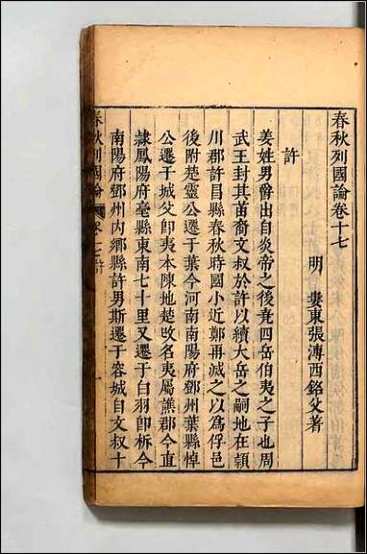 春秋列國論卷十七
明 婁東張溥西銘父著
許
姜姓男爵出自炎帝之後堯四岳伯夷之子也周
武王封其苗裔文叔於許以續大岳之嗣地在頴
川郡許昌縣春秋時國小近鄭再滅之以爲俘邑
後附楚靈公遷于葉今河南南陽府鄧州葉縣悼
公遷于城父卽夷本陳地楚攺名夷屬譙郡今直
隷鳳陽府亳縣東南七十里又遷于白羽卽析今
南陽府鄧州内鄉縣許男斯遷于容城自文叔十
春秋列國論 卷十七許 一